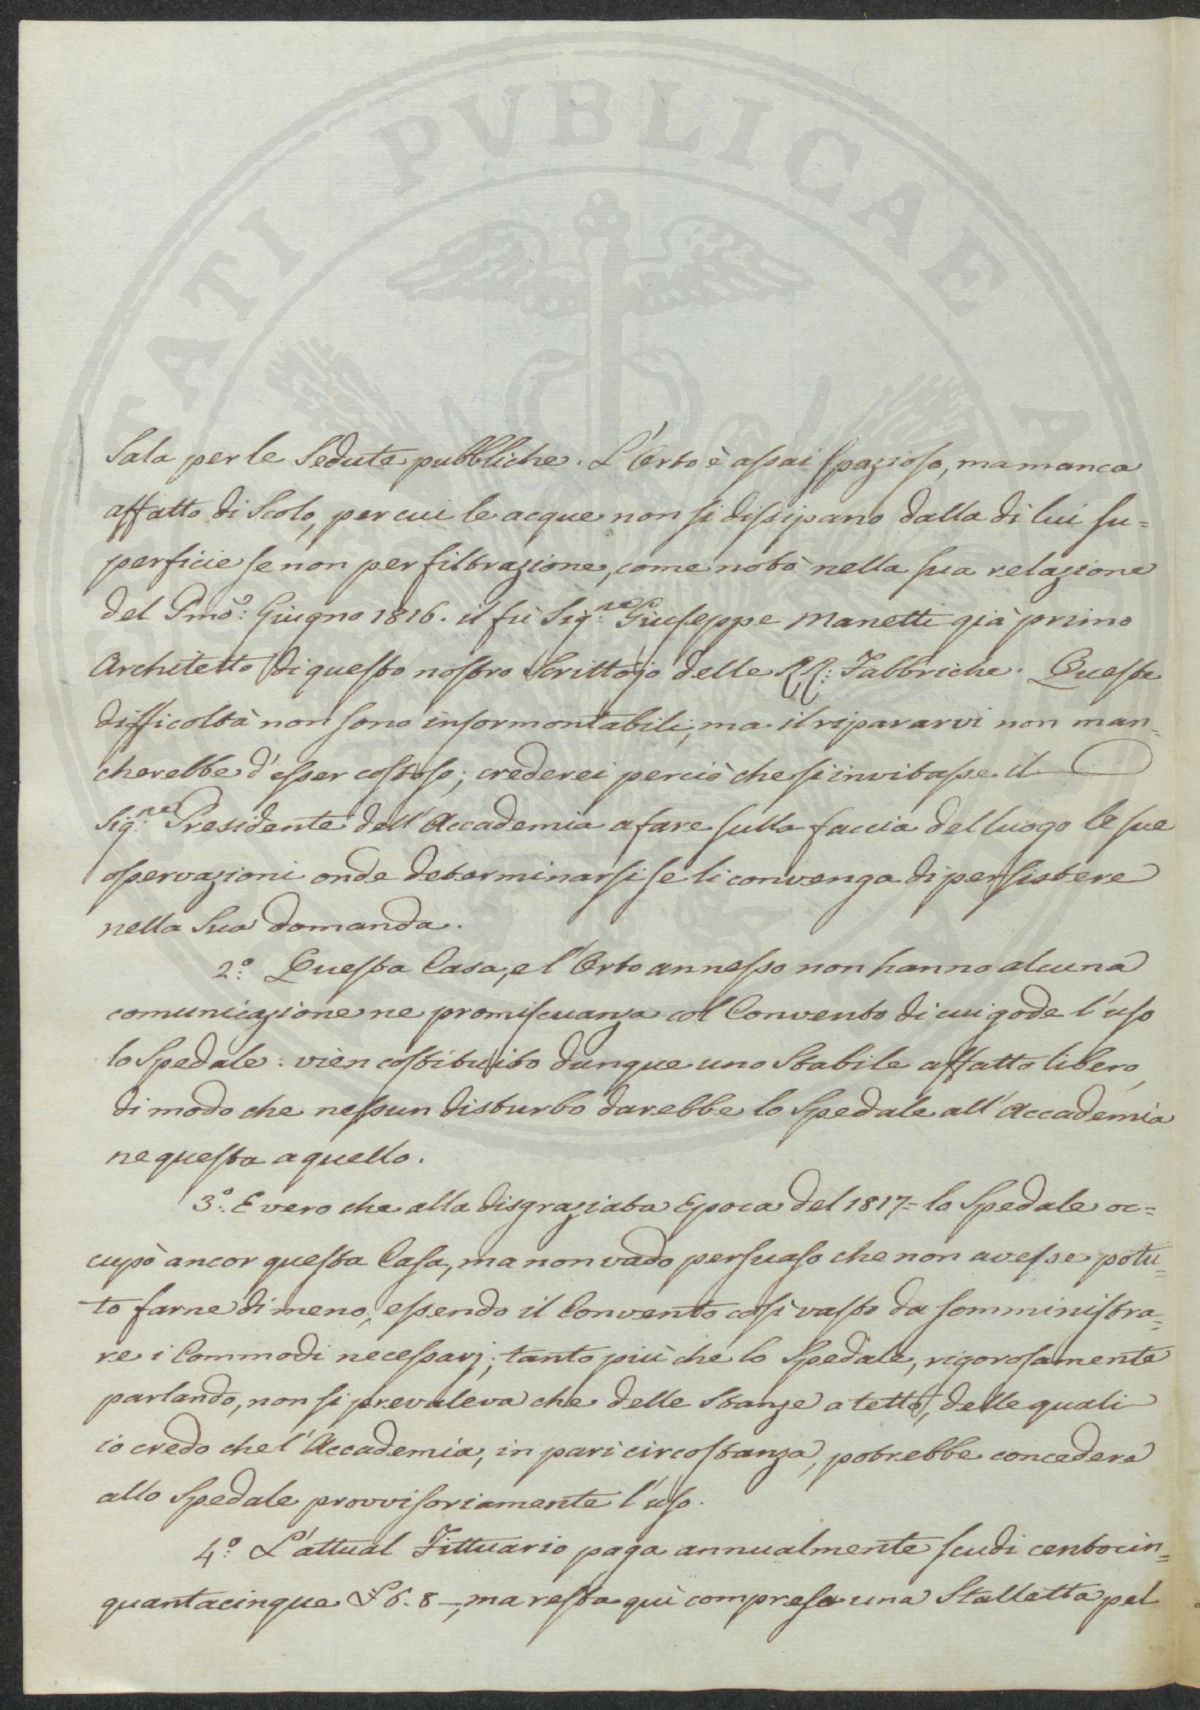 PROSPERITATI PVBLICAE AVGENDAE
Sala per le Sedute pubbliche. L'Orto è assai spazioso, ma manca
affatto di Scolo, per cui le acque non si dissipano dalla di lui su=
perficie se non per filtrazione, come notò nella sua relazione
del Pmo: Giugno 1816. il fù Sig:re Giuseppe Manetti già primo
Architetto di questo nostro Scrittojo delle RR: Fabbriche. Queste
difficoltà non sono insormontabili, ma il ripararvi non man=
cherebbe d'esser costoso; crederei perciò che si invitasse il
Sig:re Presidente dell'Accademia a fare sulla faccia del luogo le sue
osservazioni onde determinarsi se li convenga di persistere
nella sua domanda.
2:o Questa Casa, e l'Orto annesso non hanno alcuna
comunicazione ne promiscuanza col Convento di cui gode l'uso
lo Spedale: vièn costituito dunque uno Stabile affatto libero,
di modo che nessun disturbo darebbe lo Spedale all'Accademia
ne questa a quello.
3:o E vero che alla disgraziata Epoca del 1817= lo Spedale oc=
cupò ancor questa Casa, ma non vado persuaso che non avesse potu=
to farne di meno, essendo il Convento così vasto da somministra=
re i Commodi necessarj; tanto più che lo Spedale, rigorosamente
parlando, non si prevaleva che delle Stanze a tetto, delle quali
io credo che l'Accademia, in pari circostanza, potrebbe concedere
allo Spedale provvisoriamente l'uso.
4:o L'attual Fittuario paga annualmente scudi centocin=
quantacinque £ 6. 8 —, ma resta quì compresa una Stalletta pel